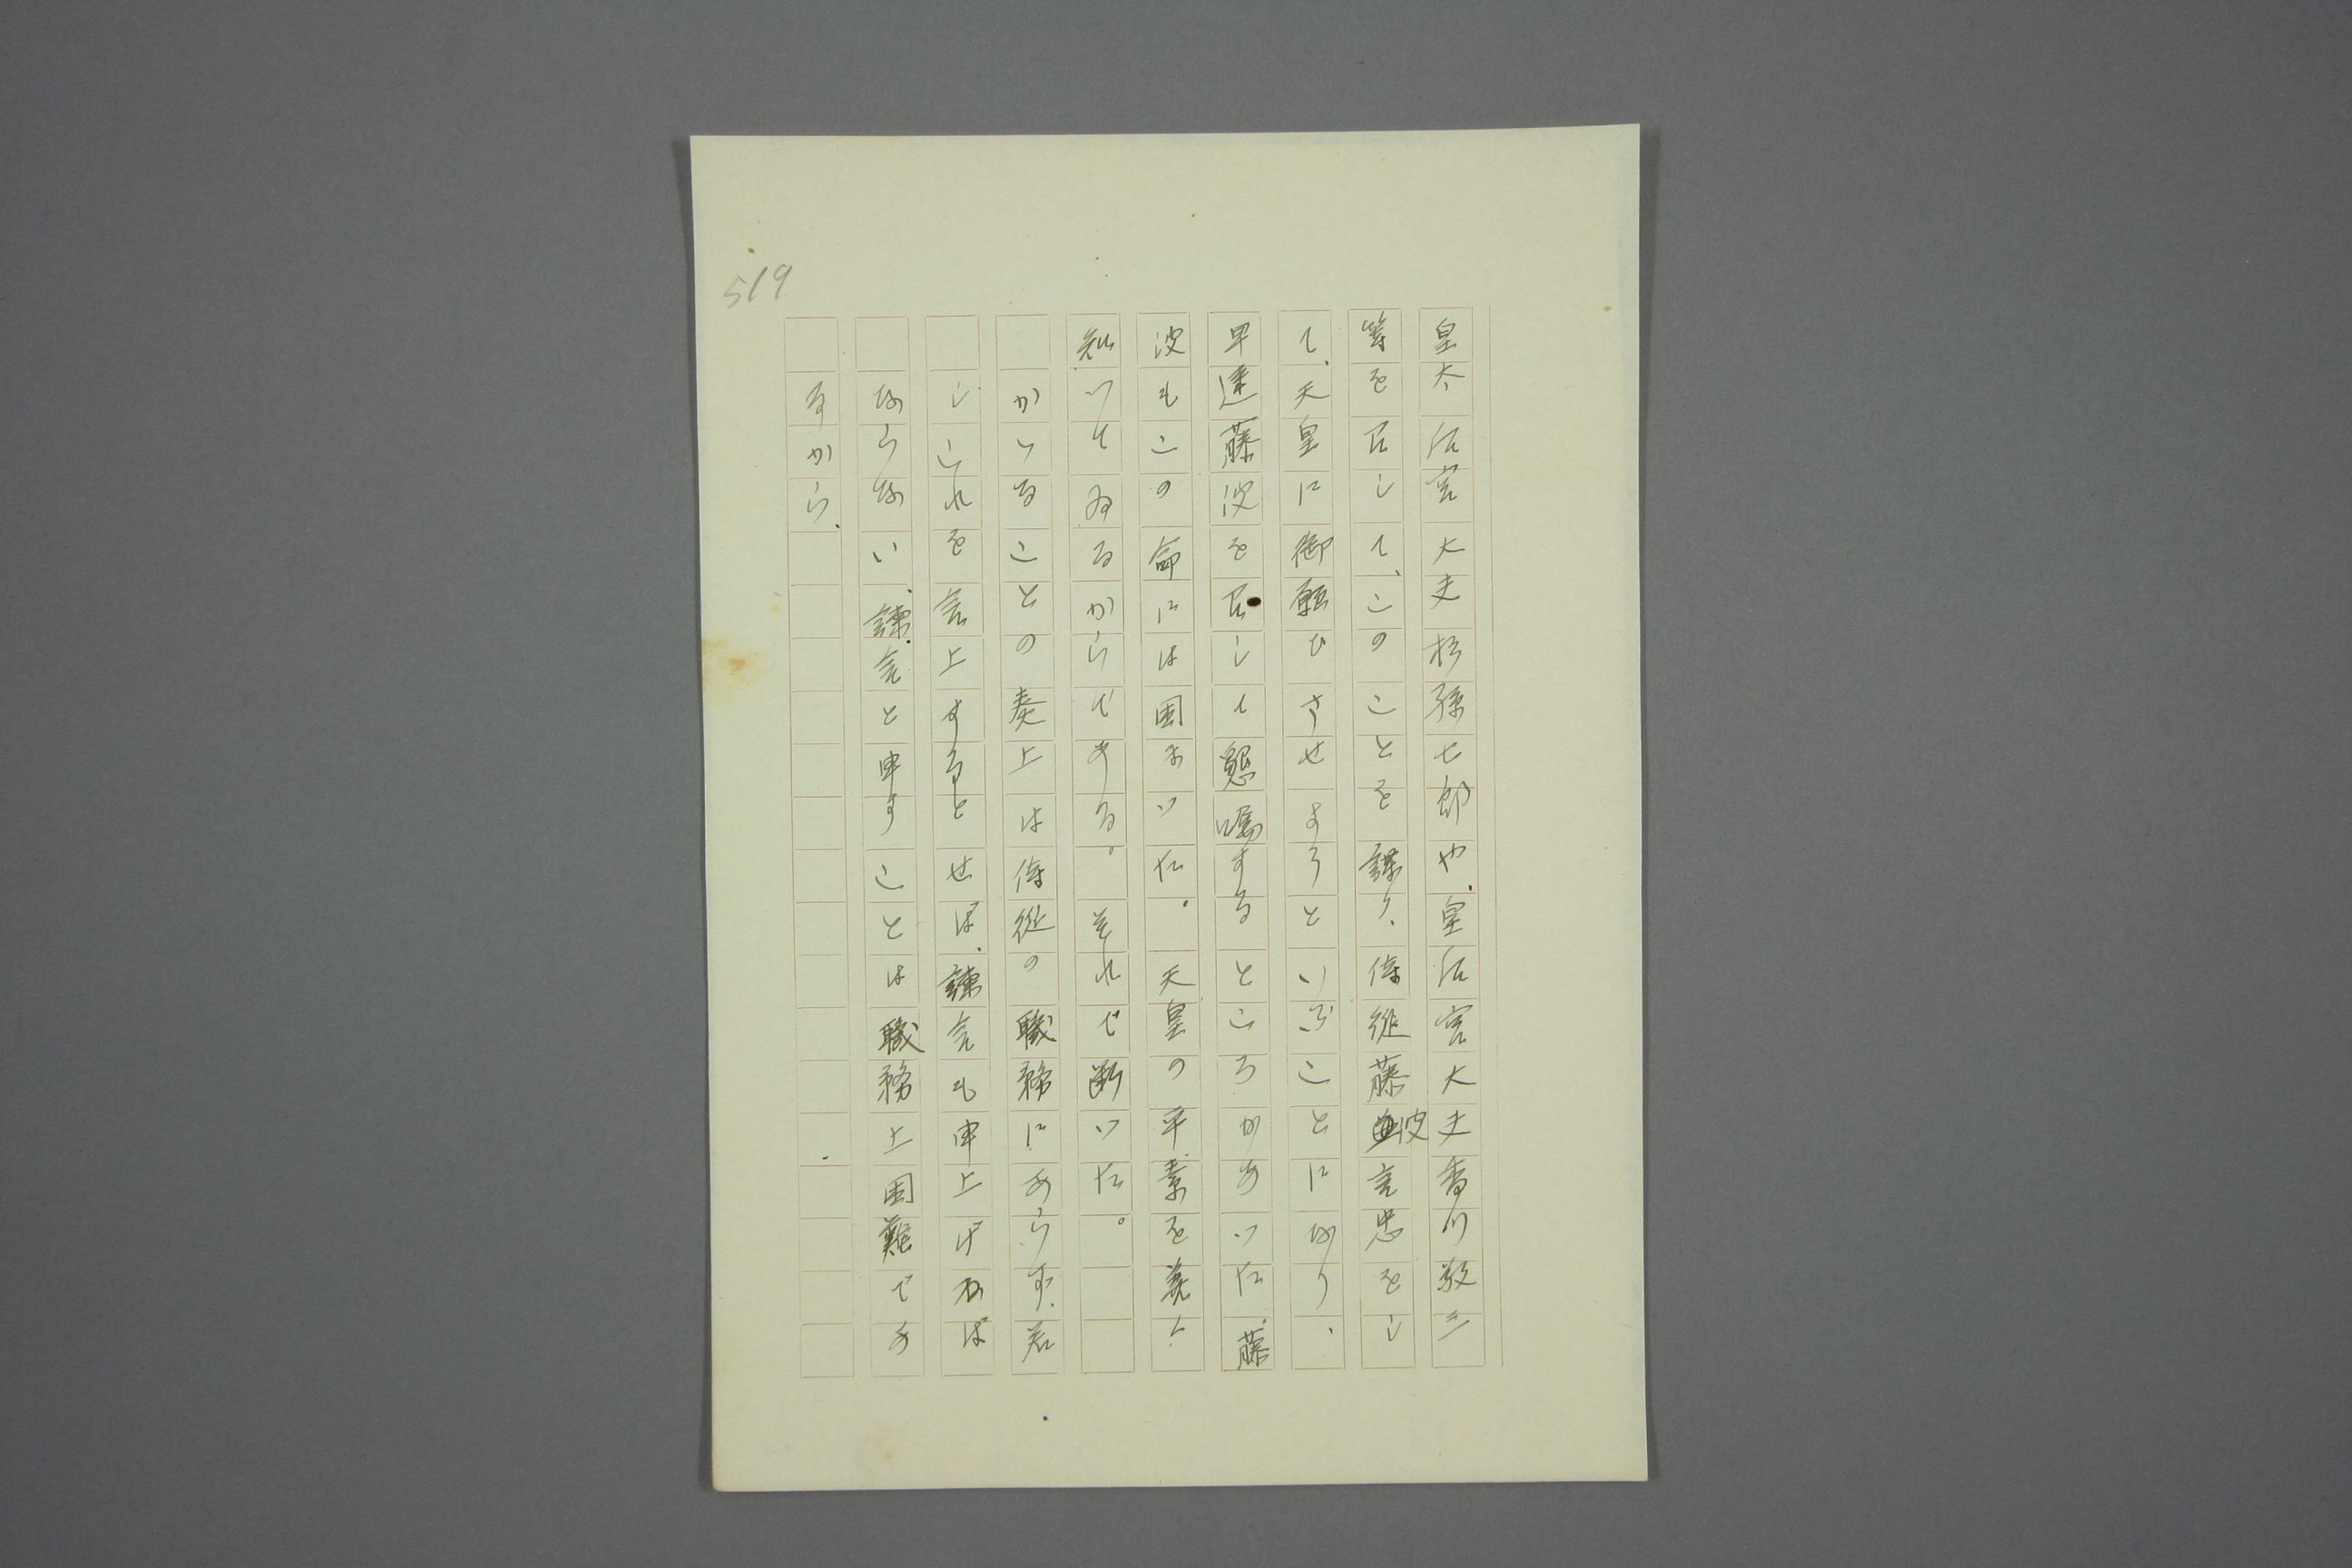 519
皇太后宮大夫杉孫七郎や、皇后宮大夫香川敬三
等を召して、このことを謀り、侍従藤波言忠をし
て、天皇に御願ひさせようといふことになり、
早速藤波を召して懇嘱するところがあつた。藤
波もこの命には困まつた。天皇の平素を善く
知つてゐるからである。それで断つた。
かゝることの奏上は侍従の職務にあらず、若
しこれを言上するとせば、諫言も申上げねば
ならない、諫言と申すことは職務上困難であ
るから、